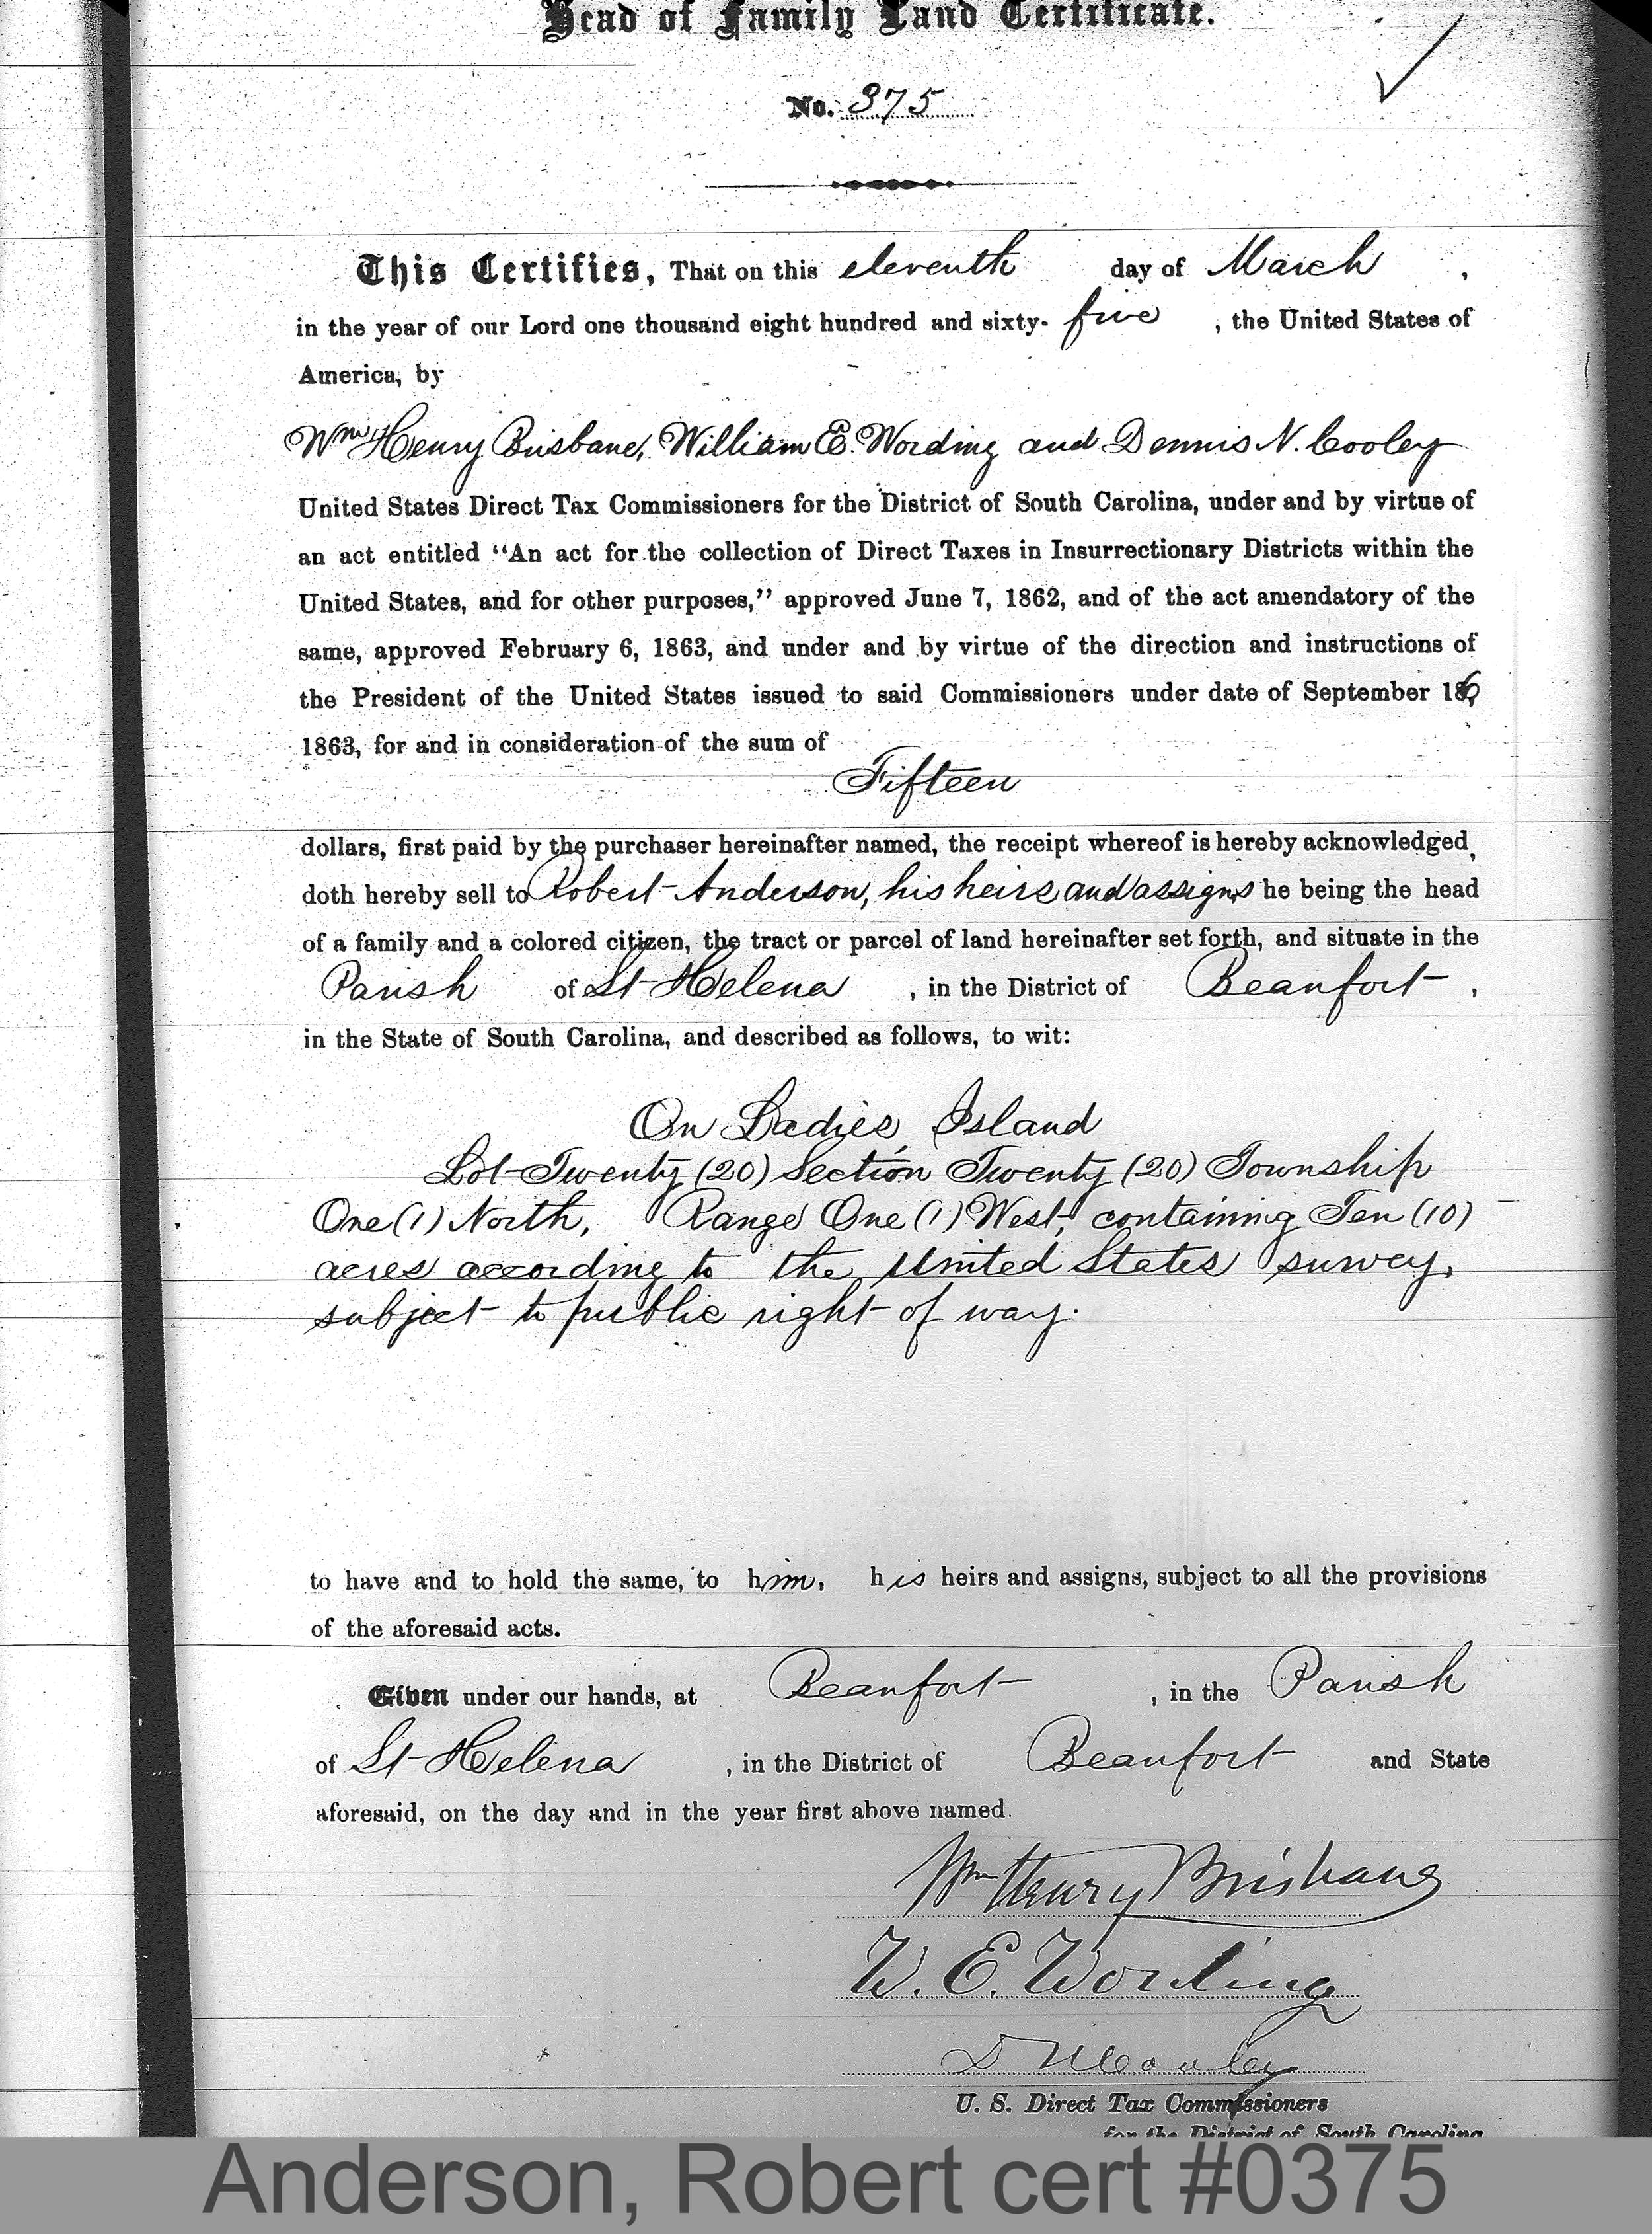 Head of Family Land Certificate.
No. 375
This Certifies, That on this eleventh day of March,
in the year of our Lord one thousand eight hundred and sixty-five, the United States of
America, by
Wm Henry Brisbane, William E. Wording and Dennis N. Cooley
United States Direct Tax Commissioners for the District of South Carolina, under and by virtue of
an act entitled "An act for the collection of Direct Taxes in Insurrectionary Districts within the
United States, and for other purposes," approved June 7, 1862, and of the act amendatory of the
same, approved February 6, 1863, and under and by virtue of the direction and instructions of
the President of the United States issued to said Commissioners under date of September 16,
1863, for and in consideration of the sum of
Fifteen
dollars, first paid by the purchaser hereinafter named, the receipt whereof is hereby acknowledged,
doth hereby sell to Robert Anderson, his heirs and assigns, he being the head
of a family and a colored citizen, the tract or parcel of land hereinafter set forth, and situate in the
Parish of St Helena, in the District of Beaufort,
in the State of South Carolina, and described as follows, to wit:
On Ladies Island
Lot Twenty (20) Section Twenty (20) Township
One (1) North, Range One (1) West, containing Ten (10)
acres according to the United States survey,
subject to public right of way.
to have and to hold the same, to him, his heirs and assigns, subject to all the provisions
of the aforesaid acts.
Given under our hands, at Beaufort, in the Parish
of St Helena, in the District of Beaufort and State
aforesaid, on the day and in the year first above named.
Wm Henry Brisbane
W. E. Wording
D N Cooley
U. S. Direct Tax Commissioners
for the District of South Carolina
Anderson, Robert cert #0375